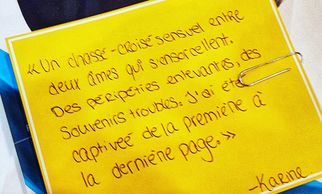 « Un chassé-croisé sensuel entre
deux âmes qui s'ensorcellent.
Des péripéties enlevantes, des
souvenirs troubles. J'ai été
captivée de la première à
la dernière page. »
-Karine